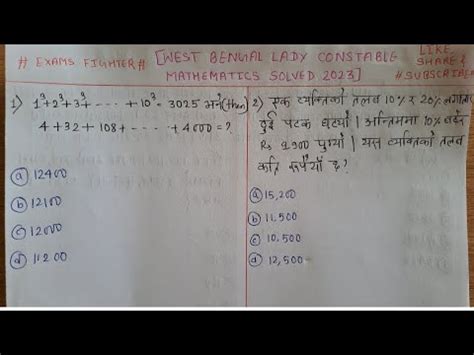 # EXAMS FIGHTER #
[WEST BENGAL LADY CONSTABLE
MATHEMATICS SOLVED 2023]
LIKE
SHARE &
#SUBSCRIBE
1) 1³+2³+3³+ - - - - +10³ = 3025 भने (then)
4+32+108+ - - - - + 4000 = ?
a 12400
b 12100
c 12000
d 11200
2) एक व्यक्तिको तलब 10% र 20% लगातार
दुई पटक घट्यो | अन्तिममा 10% बढेर
Rs पुग्यो | यस व्यक्तिको तलब
कति रूपैयाँ छ ?
a 15,200
b 11,500
c 10,500
d 12,500